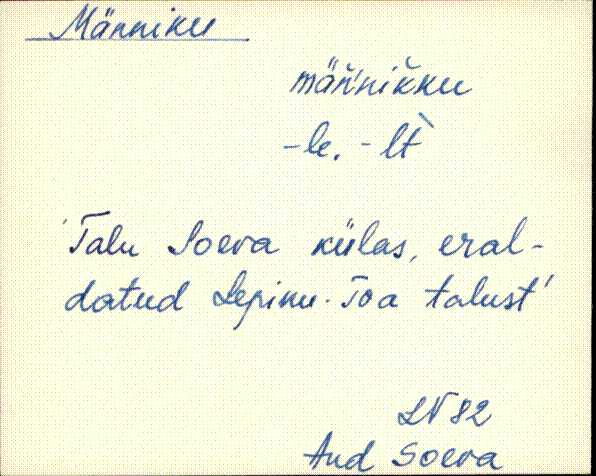 Männiku
mäňnikku
-le. -lt̀
'Talu Soeva külas, eral-
datud Lepiku-Toa talust'
LN 82
Aud Soeva